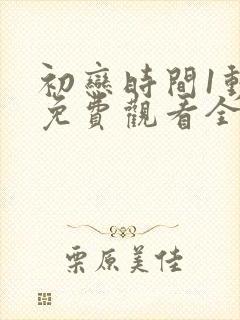 初戀時間1動
免費觀看全
栗原美佳